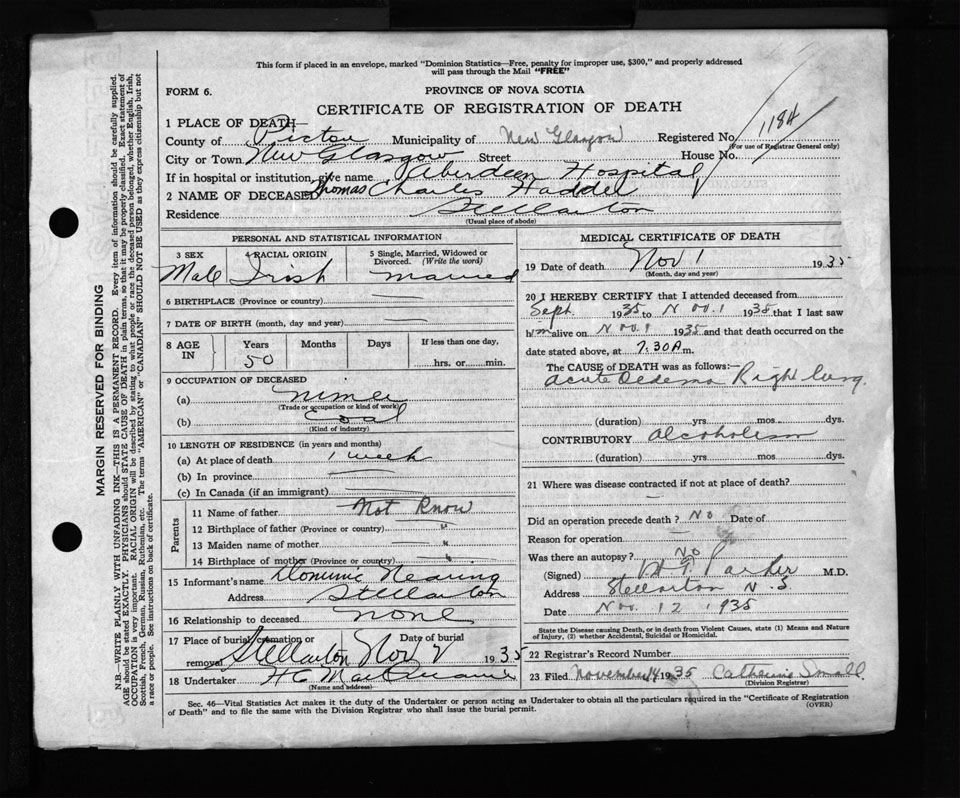 This form if placed in an envelope, marked "Dominion Statistics—Free, penalty for improper use, $300," and properly addressed
will pass through the Mail "FREE"
FORM 6.
PROVINCE OF NOVA SCOTIA
CERTIFICATE OF REGISTRATION OF DEATH
1 PLACE OF DEATH—
County of Pictou Municipality of New Glasgow Registered No. 1184
(For use of Registrar General only)
City or Town New Glasgow Street House No.
If in hospital or institution, give name Aberdeen Hospital
2 NAME OF DECEASED Thomas Charles Haddel
Residence Stellarton
(Usual place of abode)
PERSONAL AND STATISTICAL INFORMATION
3 SEX 4 RACIAL ORIGIN 5 Single, Married, Widowed or Divorced. (Write the word)
Male Irish married
6 BIRTHPLACE (Province or country) —
7 DATE OF BIRTH (month, day and year) —
8 AGE IN Years Months Days If less than one day,
50 hrs. or min.
9 OCCUPATION OF DECEASED
(a)
(Trade or occupation or kind of work)
(b) Coal
(Kind of industry)
10 LENGTH OF RESIDENCE (in years and months)
(a) At place of death 1 week
(b) In province —
(c) In Canada (if an immigrant) —
Parents
11 Name of father Not Know
12 Birthplace of father (Province or country) "
13 Maiden name of mother "
14 Birthplace of mother (Province or country) "
15 Informant's name Dominic Nearing
Address Stellarton
16 Relationship to deceased none
17 Place of burial, cremation or removal Date of burial
Stellarton Nov 2 1935
18 Undertaker
(Name and address)
MEDICAL CERTIFICATE OF DEATH
19 Date of death Nov 1 1935
(Month, day and year)
20 I HEREBY CERTIFY that I attended deceased from
Sept. 1935 to Nov. 1 1935 that I last saw
him alive on Nov. 1 1935 and that death occurred on
date stated above, at 7.30 A m.
The CAUSE of DEATH was as follows:—
Acute Oedema Right lung.
(duration) yrs. mos. dys.
CONTRIBUTORY Alcoholism
(duration) yrs. mos. dys.
21 Where was disease contracted if not at place of death?
—
Did an operation precede death? No Date of
Reason for operation —
Was there an autopsy? No
(Signed) Parker M.D.
Address Stellarton N.S
Date Nov. 12 1935
State the Disease causing Death, or in death from Violent Causes, state (1) Means and Nature
of Injury, (2) whether Accidental, Suicidal or Homicidal.
22 Registrar's Record Number
23 Filed November 14 1935 Catherine Small
(Division Registrar)
Sec. 46—Vital Statistics Act makes it the duty of the Undertaker or person acting as Undertaker to obtain all the particulars required in the "Certificate of Registration
of Death" and to file the same with the Division Registrar who shall issue the burial permit. (OVER)
MARGIN RESERVED FOR BINDING
N.B.—WRITE PLAINLY WITH UNFADING INK—THIS IS A PERMANENT RECORD. Every item of information should be carefully supplied.
AGE should be stated EXACTLY. PHYSICIANS should STATE CAUSE OF DEATH in plain terms, so that it may be properly classified. Exact statement of
OCCUPATION is very important. RACIAL ORIGIN will be described by stating to what people or race the deceased person belonged, whether English, Irish,
Scottish, French, German, Russian, Ruthenian, etc. The terms "AMERICAN" or "CANADIAN" SHOULD NOT BE USED as they express citizenship but not
a race or people. See instructions on back of certificate.